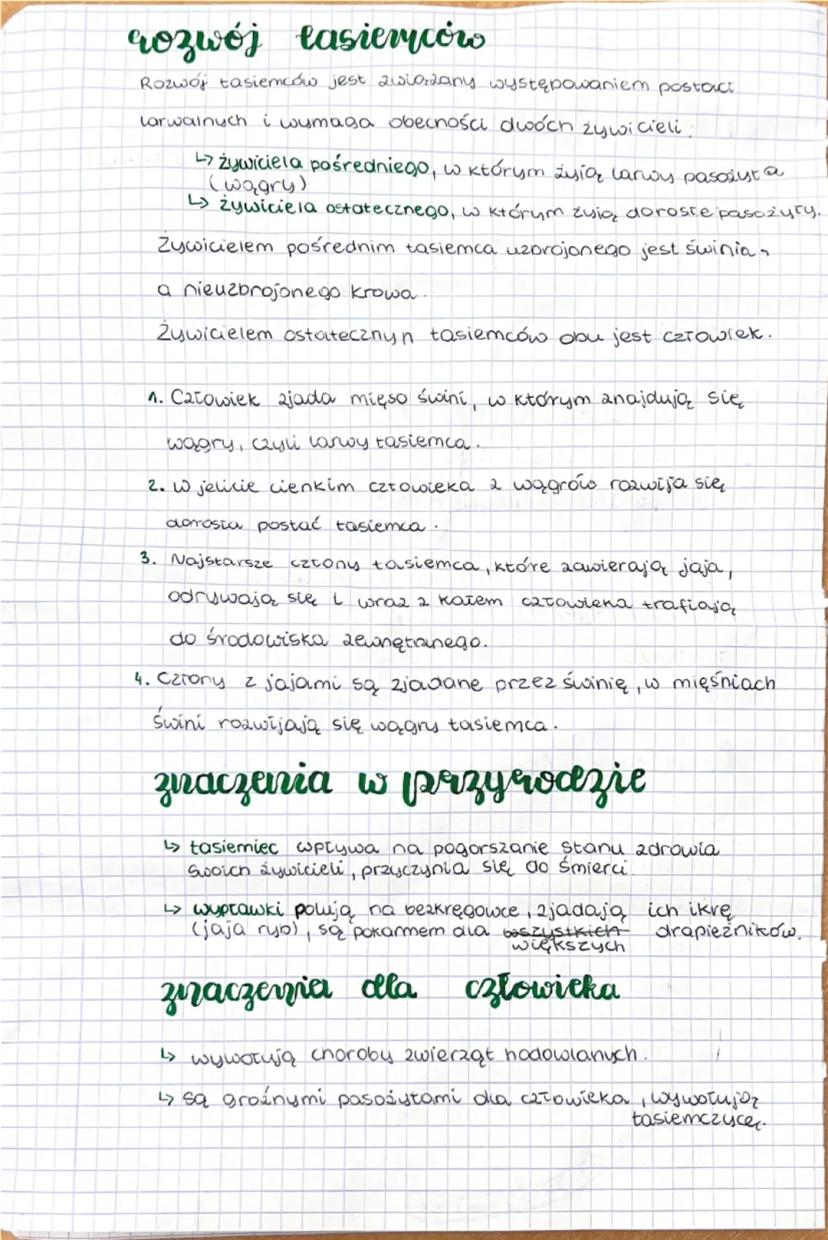 rozwój tasiemców
Rozwój tasiemców jest związany występowaniem postaci
larwalnych i wymaga obecności dwóch żywicieli:
↳ żywiciela pośredniego, w którym żyją larwy pasożyta
(wągry)
↳ żywiciela ostatecznego, w którym żyją dorosłe pasożyty.
Żywicielem pośrednim tasiemca uzbrojonego jest świnia,
a nieuzbrojonego krowa.
Żywicielem ostatecznyn tasiemców obu jest człowiek.
1. Człowiek zjada mięso świni, w którym znajdują się
wągry, czyli larwy tasiemca.
2. W jelicie cienkim człowieka z wągrów rozwija się
dorosła postać tasiemca.
3. Najstarsze człony tasiemca, które zawierają jaja,
odrywają się i wraz z kałem człowieka trafiają
do środowiska zewnętrznego.
4. Człony z jajami są zjadane przez świnię, w mięśniach
świni rozwijają się wągry tasiemca.
znaczenia w przyrodzie
↳ tasiemiec wpływa na pogorszanie stanu zdrowia
swoich żywicieli, przyczynia się do śmierci
↳ wypławki polują na bezkręgowce, zjadają ich ikrę
(jaja ryb), są pokarmem dla wszystkich drapieżników.
większych
znaczenia dla człowieka
↳ wywołują choroby zwierząt hodowlanych.
↳ są groźnymi pasożytami dla człowieka, wywołują
tasiemczycę.